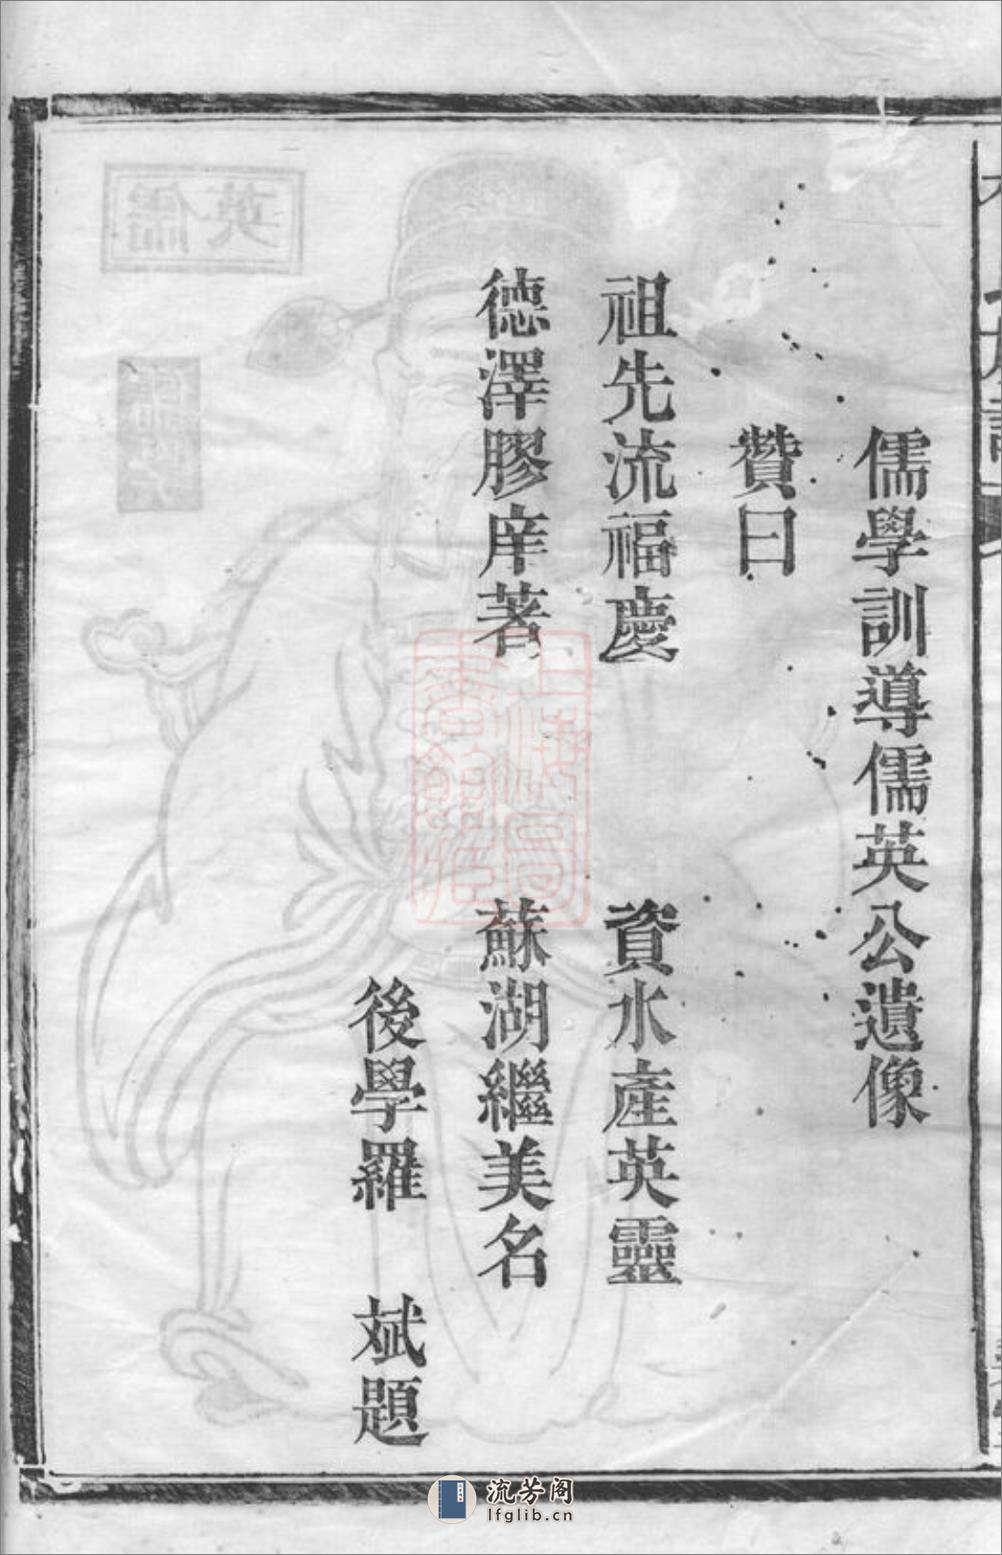 儒學訓導儒英公遺像
贊曰
祖先流福慶 資水產英靈
德澤膠庠著 蘇湖繼美名
後學羅 斌題
儒英
流芳阁
lfglib.cn